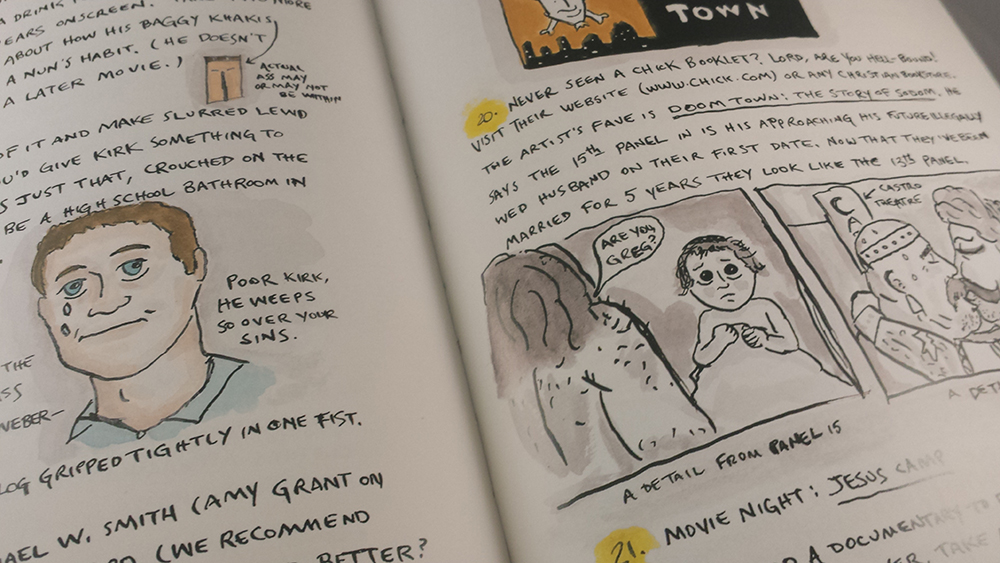 A DRINK
MORE
EARS ONSCREEN.
ABOUT HOW HIS BAGGY KHAKIS
A NUN'S HABIT. (HE DOESN'T
A LATER MOVIE.)
ACTUAL
ASS MAY
OR MAY NOT
BE WITHIN
OF IT AND MAKE SLURRED LEWD
U'D GIVE KIRK SOMETHING TO
S JUST THAT, CROUCHED ON THE
BE A HIGH SCHOOL BATHROOM IN
POOR KIRK,
HE WEEPS
SO OVER YOUR
SINS.
THE
ASS
WEBER—
LOG GRIPPED TIGHTLY IN ONE FIST.
AEL W. SMITH (AMY GRANT ON
(WE RECOMMEND
BETTER?
TOWN
20. NEVER SEEN A CHICK BOOKLET? LORD, ARE YOU HELL-BOUND!
VISIT THEIR WEBSITE (WWW.CHICK.COM) OR ANY CHRISTIAN BOOKSTORE.
THE ARTIST'S FAVE IS DOOM TOWN: THE STORY OF SODOM. HE
SAYS THE 15th PANEL IN IS HIS APPROACHING HIS FUTURE ILLEGALLY
WED HUSBAND ON THEIR FIRST DATE. NOW THAT THEY'VE BEEN
MARRIED FOR 5 YEARS THEY LOOK LIKE THE 13th PANEL.
ARE YOU
GREG?
CASTRO
THEATRE
CA
A DETAIL FROM PANEL 15
A DET
21. MOVIE NIGHT: JESUS CAMP
A DOCUMENTARY TO
TAKE